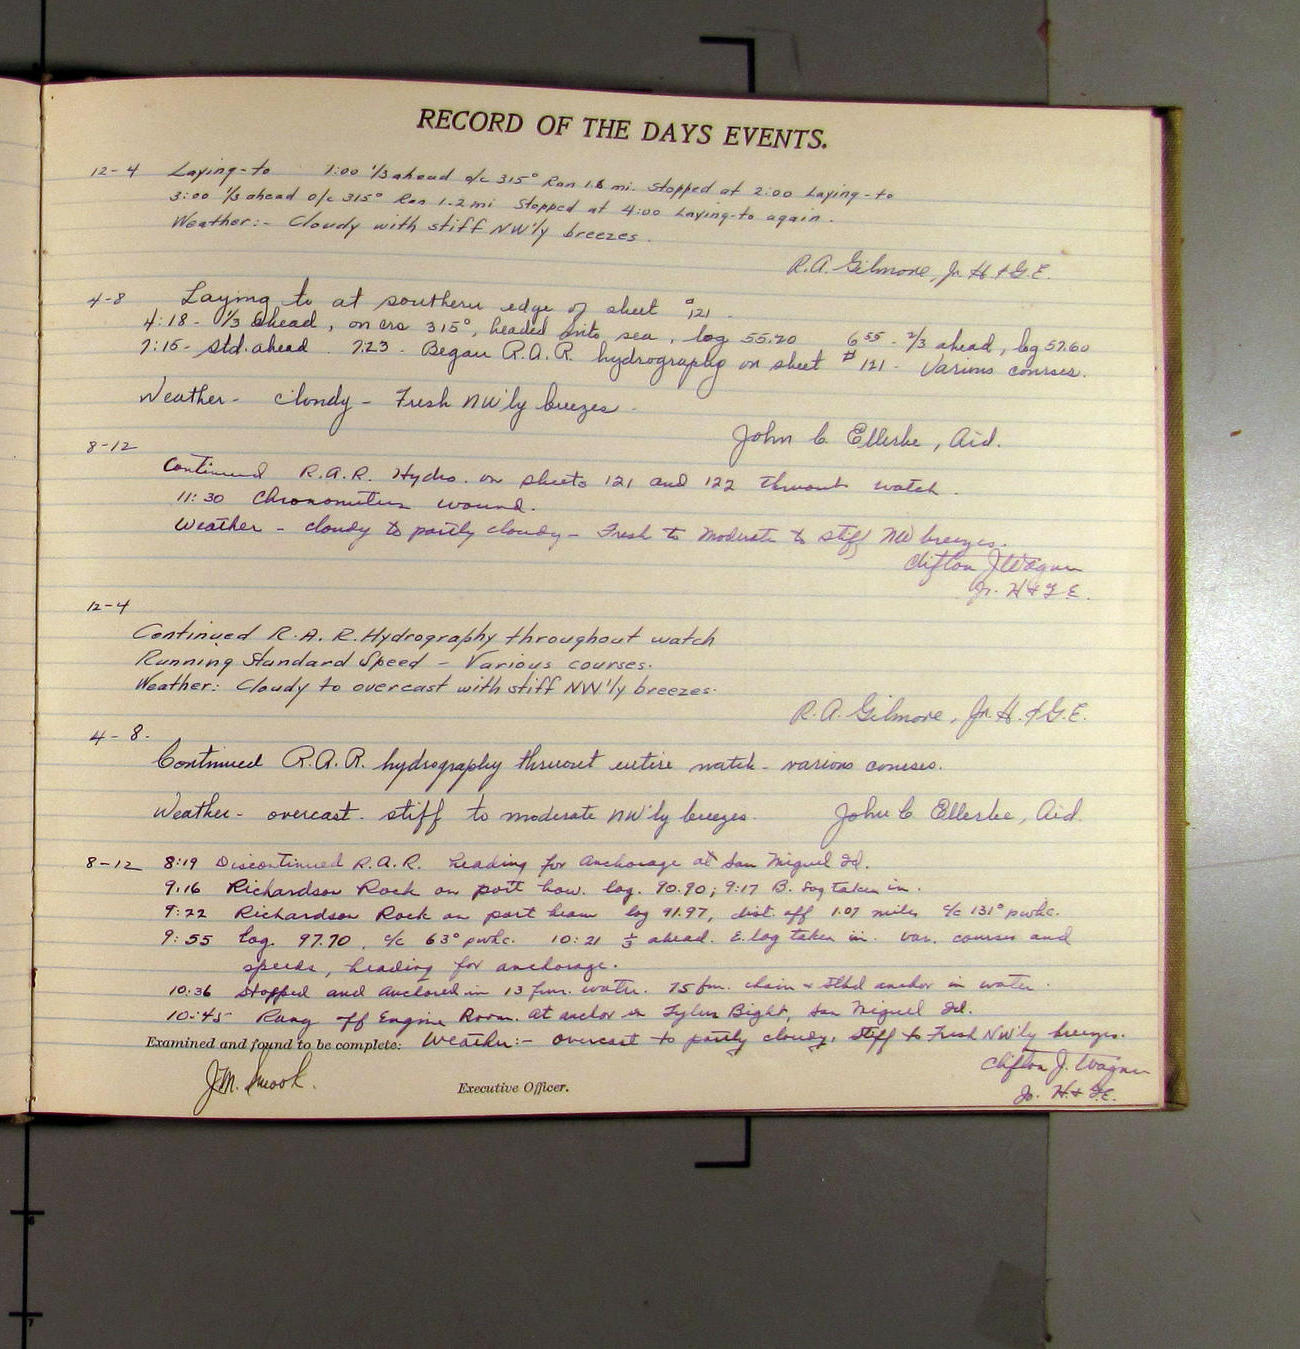 RECORD OF THE DAYS EVENTS.
12-4 Laying-to 1:00 1/3 ahead o/c 315° Ran 1.8 mi. Stopped at 2:00 Laying-to
3:00 1/3 ahead o/c 315° Ran 1.2 mi Stopped at 4:00 Laying-to again.
Weather:- Cloudy with stiff NW'ly breezes.
R.A. Gilmore, Jr. H & G.E.
4-8 Laying to at southern edge of sheet #121.
4:18- 1/3 ahead, on crs 315°, headed into sea, log 55.20 6 55 - 2/3 ahead, log 57.60
7:15- Std. ahead 7:23. Began R.A.R. hydrography on sheet #121- Various courses.
Weather- cloudy- Fresh NW'ly breezes.
John C. Ellerbe, Aid.
8-12
Continued R.A.R. Hydro. on sheets 121 and 122 thruout watch.
11:30 Chronometers wound.
Weather - cloudy to partly cloudy- Fresh to moderate to stiff NW breezes.
Clifton J. Wagner
Jr. H & G E.
12-4
Continued R.A.R. Hydrography throughout watch
Running Standard Speed - Various courses.
Weather: Cloudy to overcast with stiff NW'ly breezes.
R.A. Gilmore, Jr. H. & G.E.
4-8.
Continued R.A.R. hydrography thruout entire watch- various courses.
Weather- overcast. stiff to moderate NW'ly breezes. John C. Ellerbe, Aid.
8-12 8:19 Discontinued R.A.R. heading for anchorage at San Miguel Id.
9:16 Richardson Rock on port bow. log. 90.90; 9:17 B. log taken in.
9:22 Richardson Rock on port beam log 91.97, dist. off 1.07 miles c/c 131° pwhc.
9:55 log. 97.70. c/c 63° pwhc. 10:21 1/3 ahead. E. log taken in. Var. courses and
speeds, heading for anchorage.
10:36 Stopped and anchored in 13 fms. water. 75 fm. chain & Stbd anchor in water.
10-45 Rang off Engine Room. At anchor in Tylers Bight, San Miguel Id.
Examined and found to be complete: Weather:- Overcast to partly cloudy. Stiff to Fresh NW'ly breezes.
Clifton J. Wagner
J.M. Smook. Executive Officer. Jr. H. & G.E.